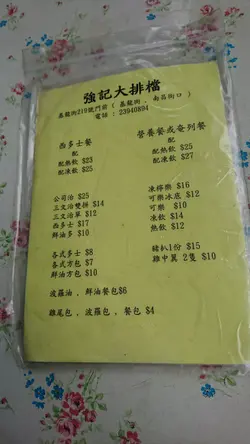 強記大排檔
基龍街219號門前 ( 基龍街 , 南昌街口 )
電話 : 23940894
西多士餐
配
配熱飲 $23
配凍飲 $25
營養餐或奄列餐
配
配熱飲 $25
配凍飲 $27
公司治 $25
三文治雙拼 $14
三文治單 $12
西多士 $17
鮮油多 $10
凍檸樂 $16
可樂冰底 $12
可樂 $10
凍飲 $14
熱飲 $12
各式多士 $8
各式方包 $7
鮮油方包 $10
豬扒1份 $15
雞中翼 2隻 $10
波羅油 , 鮮油餐包$6
雞尾包 , 波羅包 , 餐包 $4